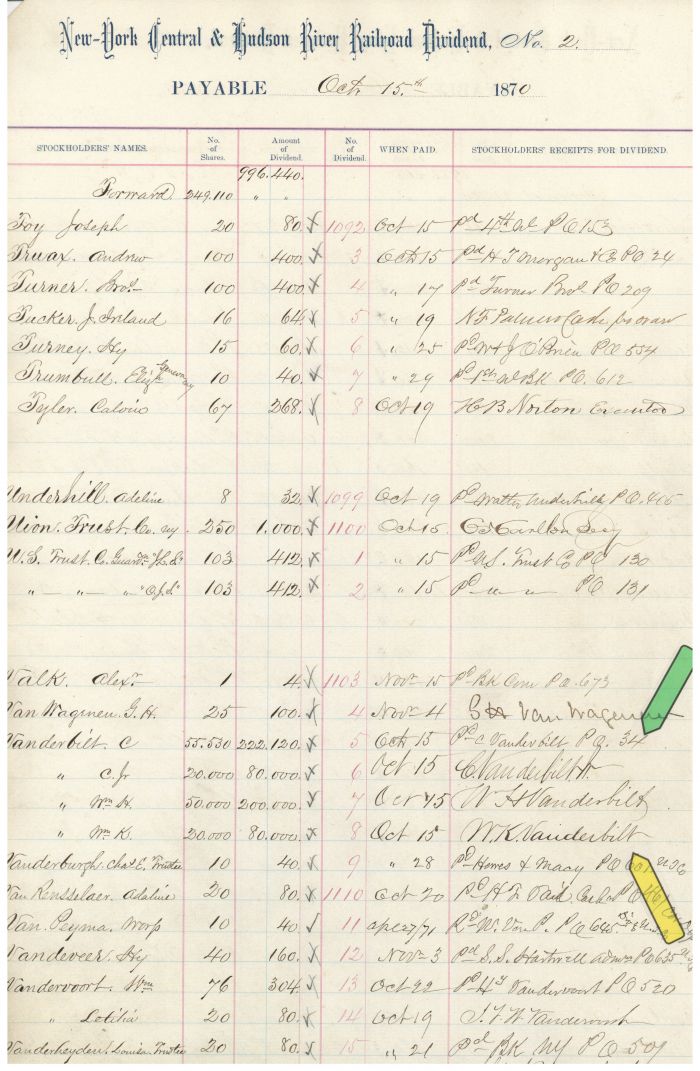 New-York Central & Hudson River Railroad Dividend, No. 2.
PAYABLE Oct. 15th 1870
STOCKHOLDERS' NAMES. No. of Shares. Amount of Dividend. No. of Dividend. WHEN PAID. STOCKHOLDERS' RECEIPTS FOR DIVIDEND.
996.440.
Forward 249.110 " "
Toy Joseph 20 80. 1092 Oct 15 Pd 4th PO 153
Truax. Andrew 100 400. 3 Oct 15 Pd H T Morgan & Co PO 24
Turner. Bros. 100 400. 4 " 17 Pd Turner Bros PO 209
Tucker. J. Ireland 16 64. 5 " 19
Turney. Hy 15 60. 6 " 25 Pd W & J O'Brien PO 554
Trumbull. Eliz. 10 40. 7 " 29 Pd 1st PO. 612
Tyler. Calvin 67 268. 8 Oct 19 H B Norton
Underhill. Adeline 8 32. 1099 Oct 19 Pd Walter Underhill PO. 405
Uion. Trust. Co. NY 250 1.000. 1100 Oct 15 Secy
U.S. Trust. Co. Guardn 103 412. 1 " 15 Pd U.S. Trust Co PO 130
" — " — " 103 412. 2 " 15 Pd " " PO 131
Valk. Alexr 1 4. 1103 Novr 15 Pd Bk Com PO. 673
Van Wagenen. G. H. 25 100. 4 Novr 4 G H Van Wagenen
Vanderbilt. C 55.530 222.120. 5 Oct 15 Pd C Vanderbilt PO. 34
" C. Jr 20.000 80.000. 6 Oct 15 C. Vanderbilt Jr.
" Wm H. 50.000 200.000. 7 Oct 15 W H Vanderbilt
" Wm K. 20.000 80.000. 8 Oct 15 W. K. Vanderbilt
Vanderburgh. Chas E. Trustee 10 40. 9 " 28 Pd Howes & Macy PO
Van Rensselaer. Adaline 20 80. 1110 Oct 20 Pd H. F. PO
Van. Peyma. Worp 10 40 11 Apl 27/71 W. Van P. PO 645
Vandeveer. Hy 40 160. 12 Novr 3 Pd S. S. Hartwell PO 635
Vandervoort. Wm 76 304. 13 Oct 22 Pd Hy Vandervoort PO 520
" Letitia 20 80. 14 Oct 19 Vandervoort
Vanderheyden. Louisa. Trustee 20 80. 15 " 21 Pd BK NY PO 509